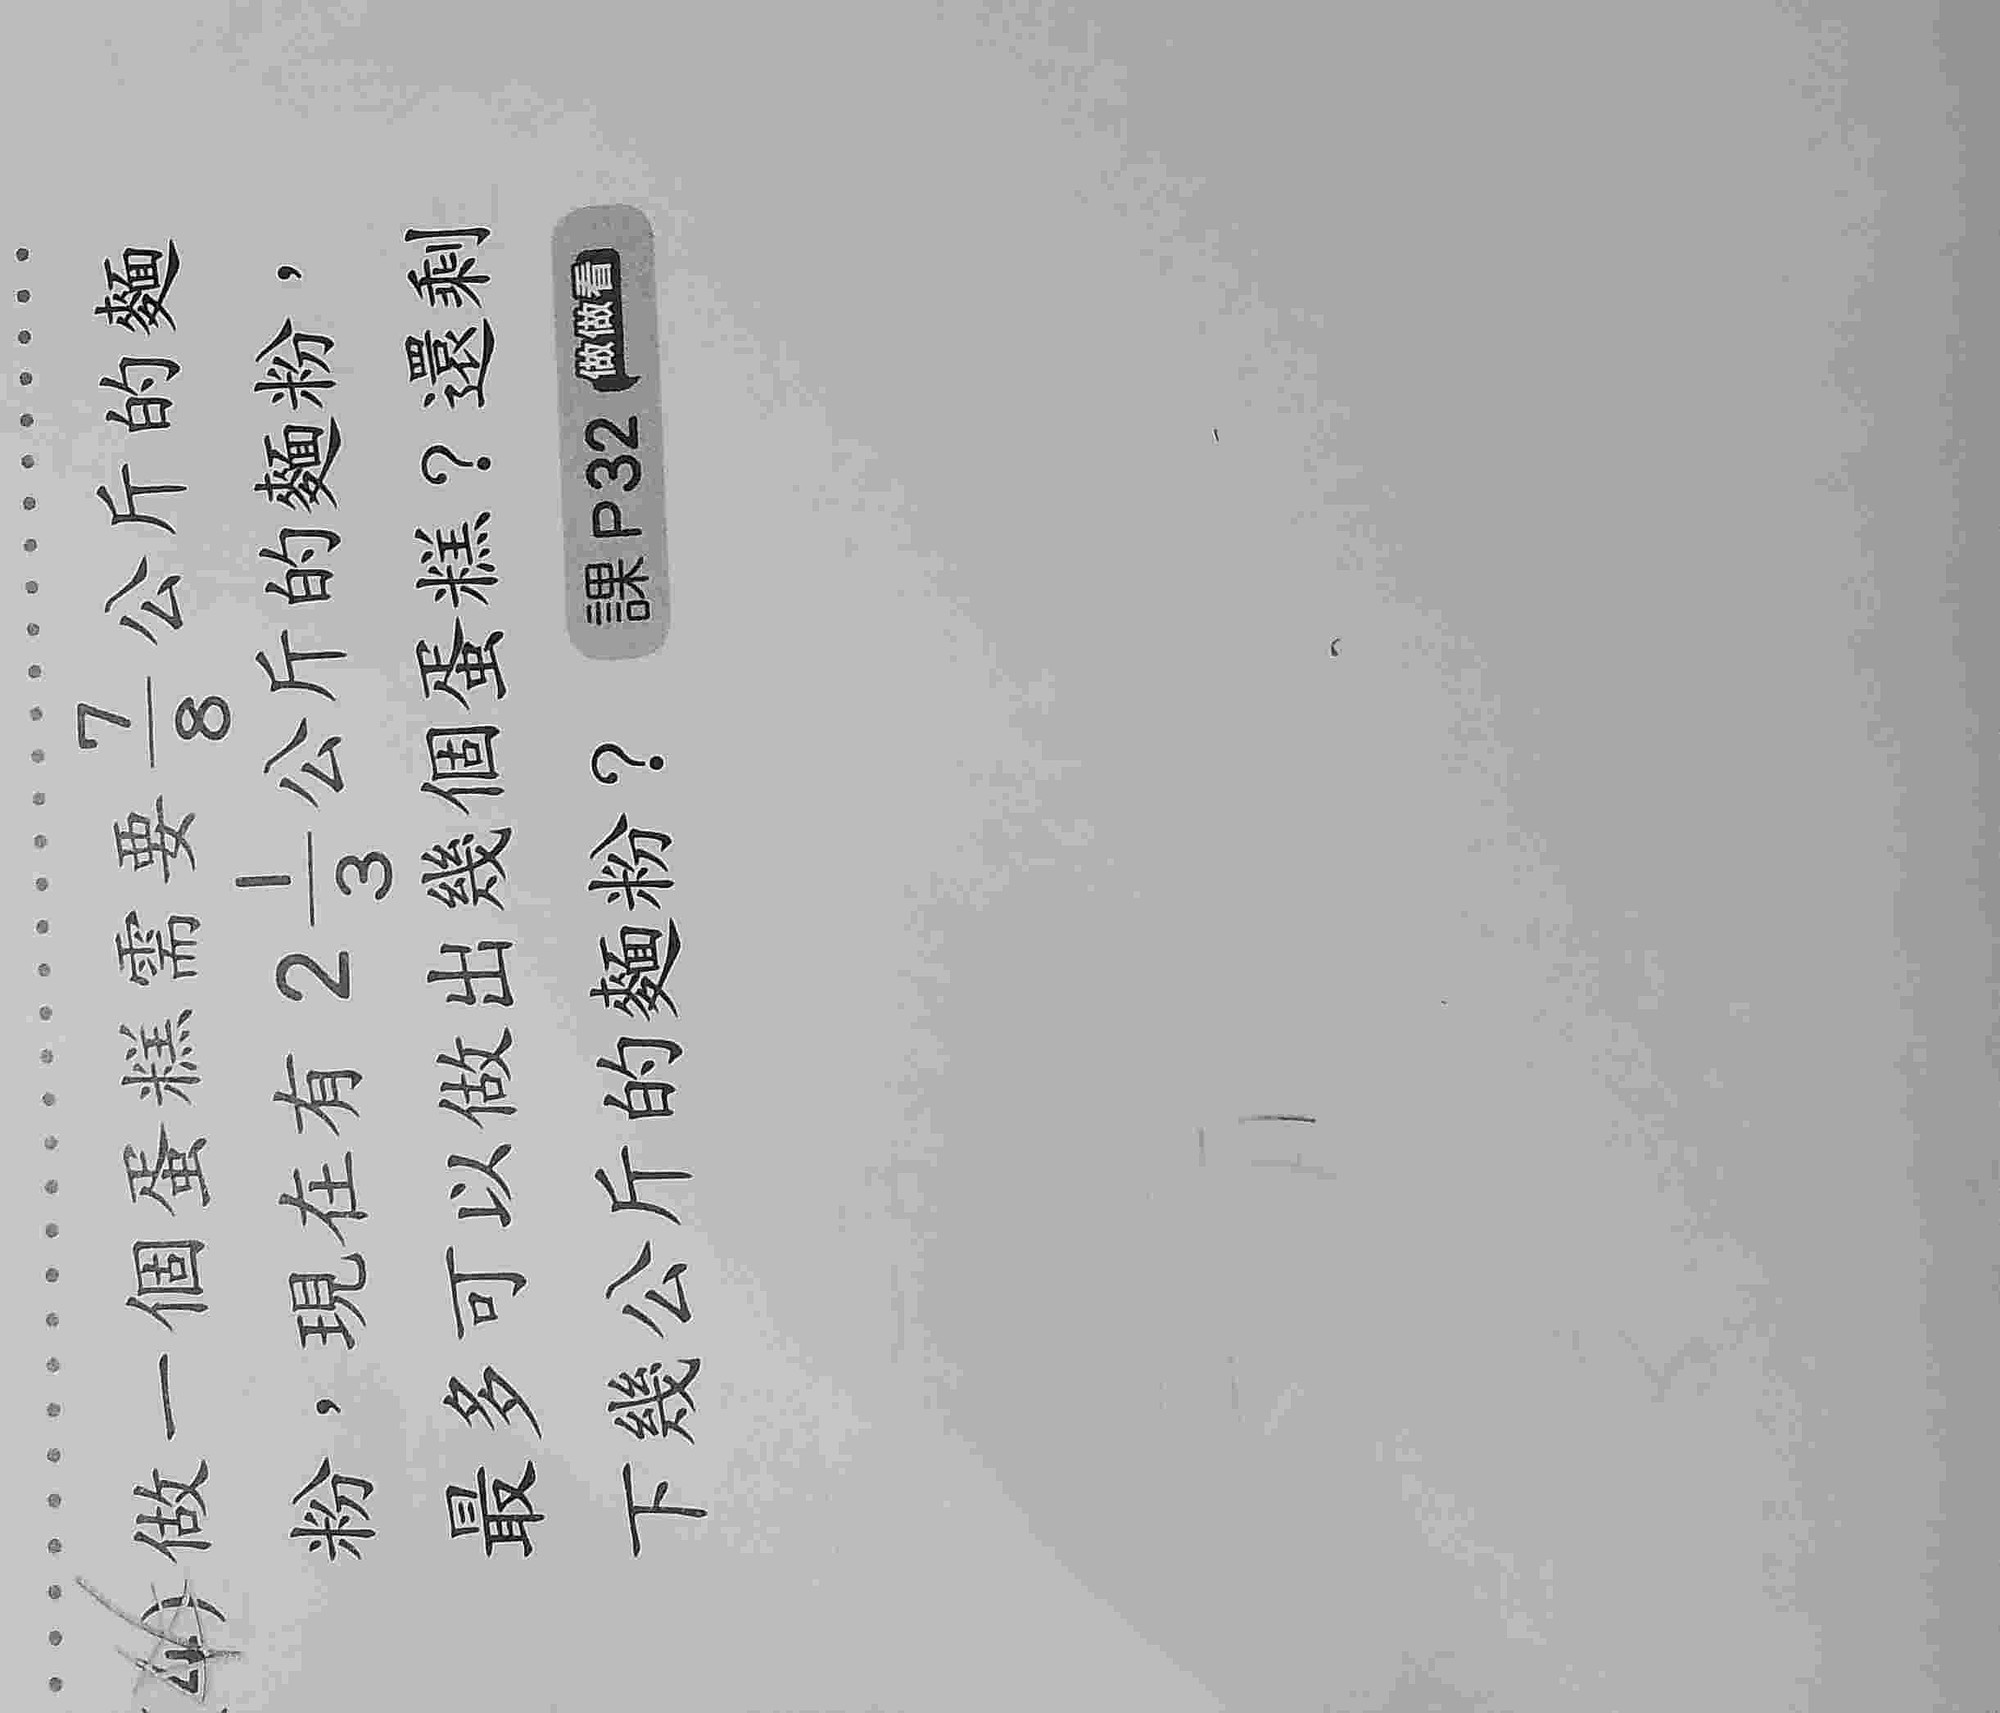 (4) 做一個蛋糕需要 7/8 公斤的麵
粉，現在有 2 1/3 公斤的麵粉，
最多可以做出幾個蛋糕？還剩
下幾公斤的麵粉？ 課P32 做做看